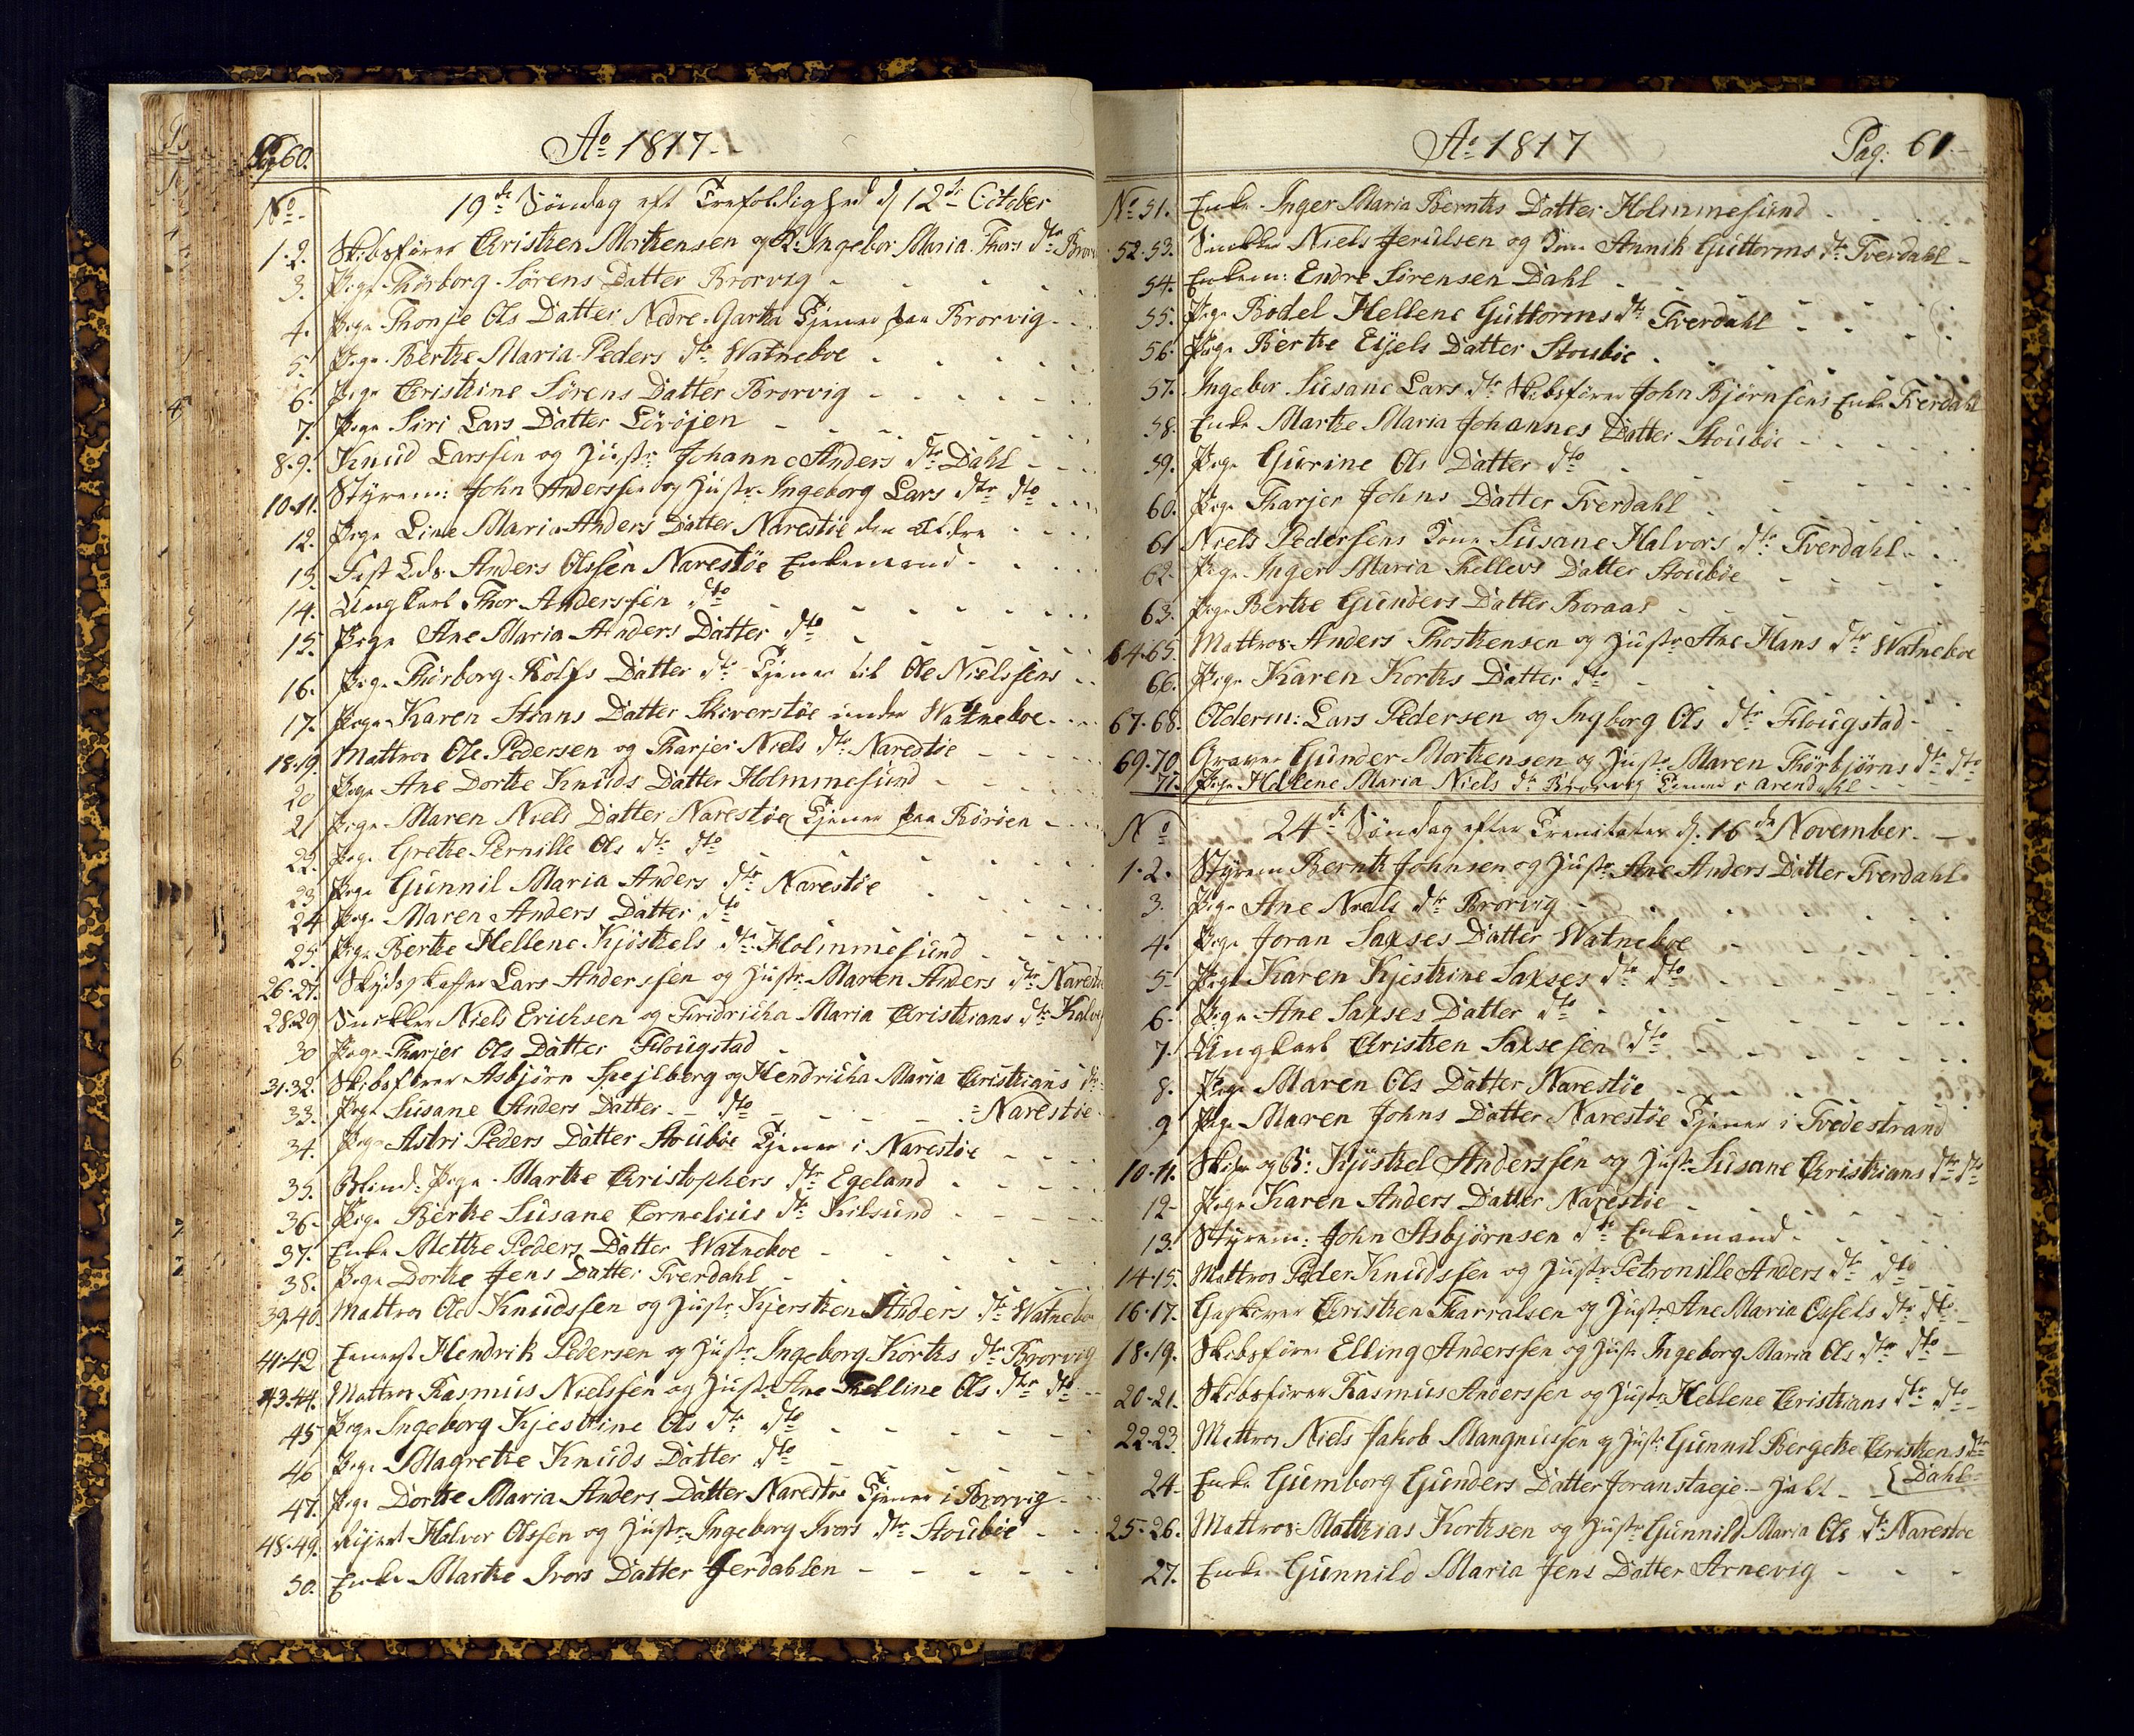 Pag 60.
Ao 1817
No
19de Søndag eft Trefoldighed d 12te October
1.2. Skibsfører Christen Mortensen og K: Ingebor Maria Thors dtr Bror
3. Pige Thörborg Sörens Datter Brorvig
4. Pige Thonje Ols Datter Nedre Garta Tjener paa Brorvig
5. Pige Berthe Maria Peders dtr Watneboe
6. Pige Christine Sörens Datter Brorvig
7. Pige Siri Lars Datter
8.9. Knud Larssen og Hustr: Johanne Anders dtr Dahl
10.11. Styrem: John Anderssen og Hustr Ingeborg Lars dtr dto
12. Pige Line Maria Anders Datter Narestöe den Ældre
13. Anders Olssen Narestöe Enkemand
14. Ungkarl Thor Anderssen dto
15. Pige Ane Maria Anders Datter dto
16. Pige Thörborg Rolfs Datter dto Tjener til Ole Nielssens
17. Pige Karen Stians Datter Skiverstöe under Watneboe
18.19. Mattros Ole Pedersen og Tharjer Niels dtr Narestöe
20 Pige Ane Dorthe Knuds Datter Holmmesund
21 Pige Maren Niels Datter Narestöe Tjener paa Böröen
22. Pige Grethe Pernille Ols dtr dto
23 Pige Gunnil Maria Anders dtr Narestöe
24 Pige Maren Anders Datter dto
25. Pige Berthe Hellene Kjöstels dtr Holmmesund
26.27. Skydsskaffer Lars Anderssen og Hustr: Maren Anders dtr Narest
28.29 Snekker Niels Erichsen og Fridricha Maria Christians dtr Kalv
30 Pige Tharjer Ols Datter Flougstad
31.32. Skibsfører Asbjörn Spejlberg og Hendricha Maria Christians dtr
33. Pige Susane Anders Datter dto Narestöe
34. Pige Astri Peders Datter Stouböe Tjener i Narestöe
35. Blind Pige Marthe Christophers dtr Egeland
36. Pige Berthe Susane Cornelius dtr Kilsund
37. Enke Methe Peders Datter Watneboe
38. Pige Dorthe Jens Datter Tverdahl
39.40. Mattros Ole Knudssen og Hustr Kjersthen Anders dtr Watneboe
41.42 Hendrik Pedersen og Hustr. Ingeborg Korths dtr Brorvig
43.44. Mattros Rasmus Nielssen og Hustr Ane Thelline Ols dtr dto
45 Pige Ingeborg Kjestine Ols dtr dto
46 Pige Magrethe Knuds Datter dto
47. Pige Dorthe Maria Anders Datter Narestöe Tjener i Brorvig
48.49. Halvor Olssen og Hustr Ingeborg Ivors dtr Stouböe
50. Enke Marthe Ivors Datter Jerdahlen
Ao 1817
Pag: 61.
No 51. Enke Inger Maria Bernths Datter Holmmesund
52.53. Snekker Niels Jerulsen og Kone Annih Guttorms dtr Tverdahl
54. Enkem: Endre Sörensen Dahl
55. Pige Bodel Hellene Guttorms dtr Tverdahl
56. Pige Berthe Eijels Datter Stouböe
57. Ingebor Susane Lars dtr Skibsfører John Bjørnsens Enke Tverdahl
58. Enke Marthe Maria Johannes Datter Stouböe
59. Pige Gurine Ols Datter dto
60. Pige Tharjer Johns Datter Tverdahl
61 Niels Pedersens Kone Susane Halvors dtr Tverdahl
62. Pige Inger Maria Thellevs Datter Stouböe
63. Pige Berthe Gunders Datter Boraas
64.65. Mattros Anders Thostensen og Hustr Ane Hans dtr Watneboe
66. Pige Karen Korths Datter dto
67.68. Olderm: Lars Pedersen og Ingborg Ols dtr Flougstad
69.70. Graver Gunder Mortensen og Hustr Maren Thörbjörns dtr dto
71. Pige Hellene Maria Niels dtr Brorvig Tjener i Arendahl
No
24de Søndag efter Trenitates d. 16de November
1.2. Styrem Bernth Johnsen og Hustr Ane Anders Datter Tverdahl
3. Pige Ane Niels dtr Brorvig
4. Pige Joran Saxses Datter Watneboe
5 Pige Karen Kjesthine Saxses dtr dto
6. Pige Ane Saxses Datter dto
7. Ungkarl Christen Saxsesen dto
8. Pige Maren Ols Datter Narestöe
9 Pige Maren Johns Datter Narestöe Tjener i Tvedestrand
10.11. Kjösthel Anderssen og Hustr Susane Christians dtr dto
12 Pige Karen Anders Datter Narestöe
13. Styrem: John Asbjørnsen dto Enkemand
14.15. Mattros Peder Knudssen og Hustr Petronille Anders dtr dto
16.17. Christen Tharralsen og Hustr Ane Maria Ossels dtr dto
18.19. Skibsfører Elling Anderssen og Hustr Ingeborg Maria Ols dtr dto
20.21. Skibsfører Rasmus Anderssen og Hustr Hellene Christians dtr dto
22.23. Mattros Niels Jakob Mangnussen og Hustr Gunnil Bergethe Christens dtr
Dahl
24. Enke Gumborg Gunders Datter
25.26. Mattros Matthias Korthsen og Hustr Gunnild Maria Ols dtr Narestöe
27. Enke Gunnild Maria Jens Datter Arnevig